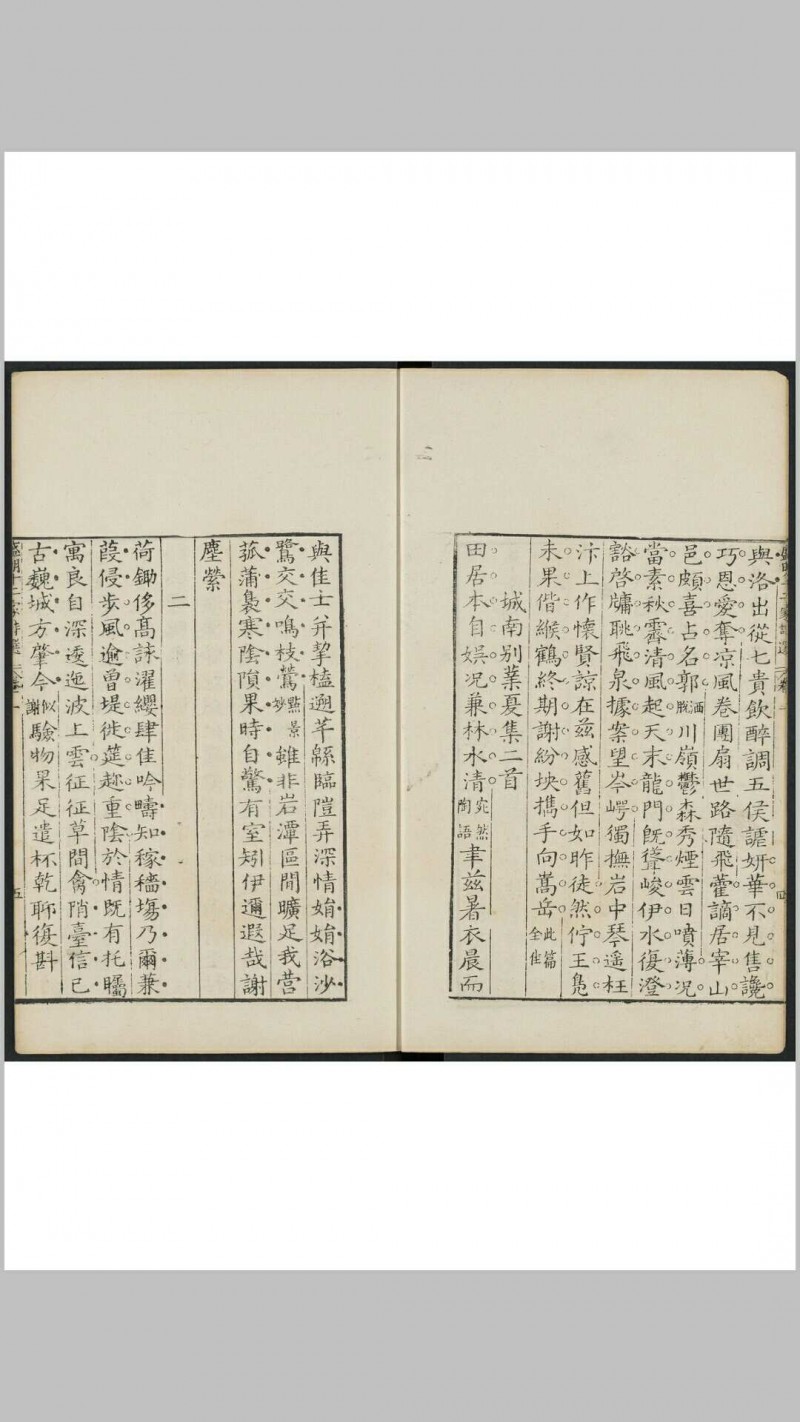 與洛出從七貴飲醉調五侯謔妍華不見售讒
巧恩愛奪凉風卷團扇世路隨飛藿謫居宰山
邑頗喜占名郭洒脫川嶺鬱森秀煙雲日噴薄况
當素秋霽清風起天末龍門旣聳峻伊水復澄
豁啓牗眺飛泉據案望岑崿獨撫岩中琴遥枉
汴上作懷賢諒在兹感舊但如昨徒然佇王凫
未果偕緱鶴終期謝紛埃擕手向嵩岳此篇全佳
城南别業夏集二首
田居本自娯况兼林水清宛然陶語聿兹暑衣晨而
與佳士并挈榼遡芊緜臨隑弄深情娟娟浴沙
鷺交交鳴枝鶯㸃景妙雖非岩潭區閒曠足我营
菰蒲裊寒陰隕果時自驚有室矧伊邇遐哉謝
塵縈
二
荷鋤侈髙詠濯纓肆佳吟疇知稼穡塲乃爾兼
葭侵步風逾曾堤徙筵趂重陰於情既有托矚
寓良自深逶迤波上雲征征草間禽陗臺信已
古巍城方肇今似謝驗物果足遣杯乾聊復斟
五
四